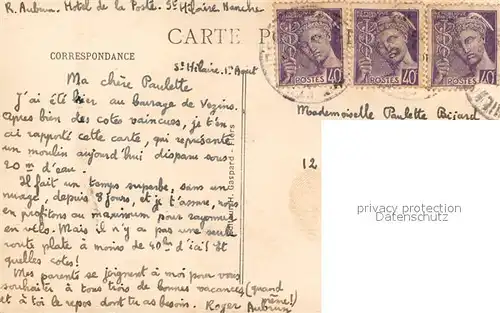 R. Aubrun. Hotel de la Poste. St Hilaire Manche
CARTE PO
CORRESPONDANCE
POSTES 40
POSTES 40
POSTES 40
St Hilaire, 1er Aout
Ma chère Paulette
J'ai été hier au barrage de Vezins.
Apres bien des cotes vaincues, je t'en
ai rapporté cette carte, qui représente
un moulin aujourd'hui disparu sous
20m d'eau.
Il fait un temps superbe, sans un
nuage, depuis 8 jours, et je t'assure, nous
en profitons au maximum pour rayonner
en vélo. Mais il n'y a pas une seule
route plate à moins de 40km d'ici! Et
quelles cotes!
Mes parents se joignent à moi pour vous
souhaiter à tous trois de bonnes vacances (quand
même!)
et à toi le repos dont tu as besoin. Roger Aubrun
Mademoiselle Paulette Bijard
12
Gaspard - Flers
privacy protection
Datenschutz